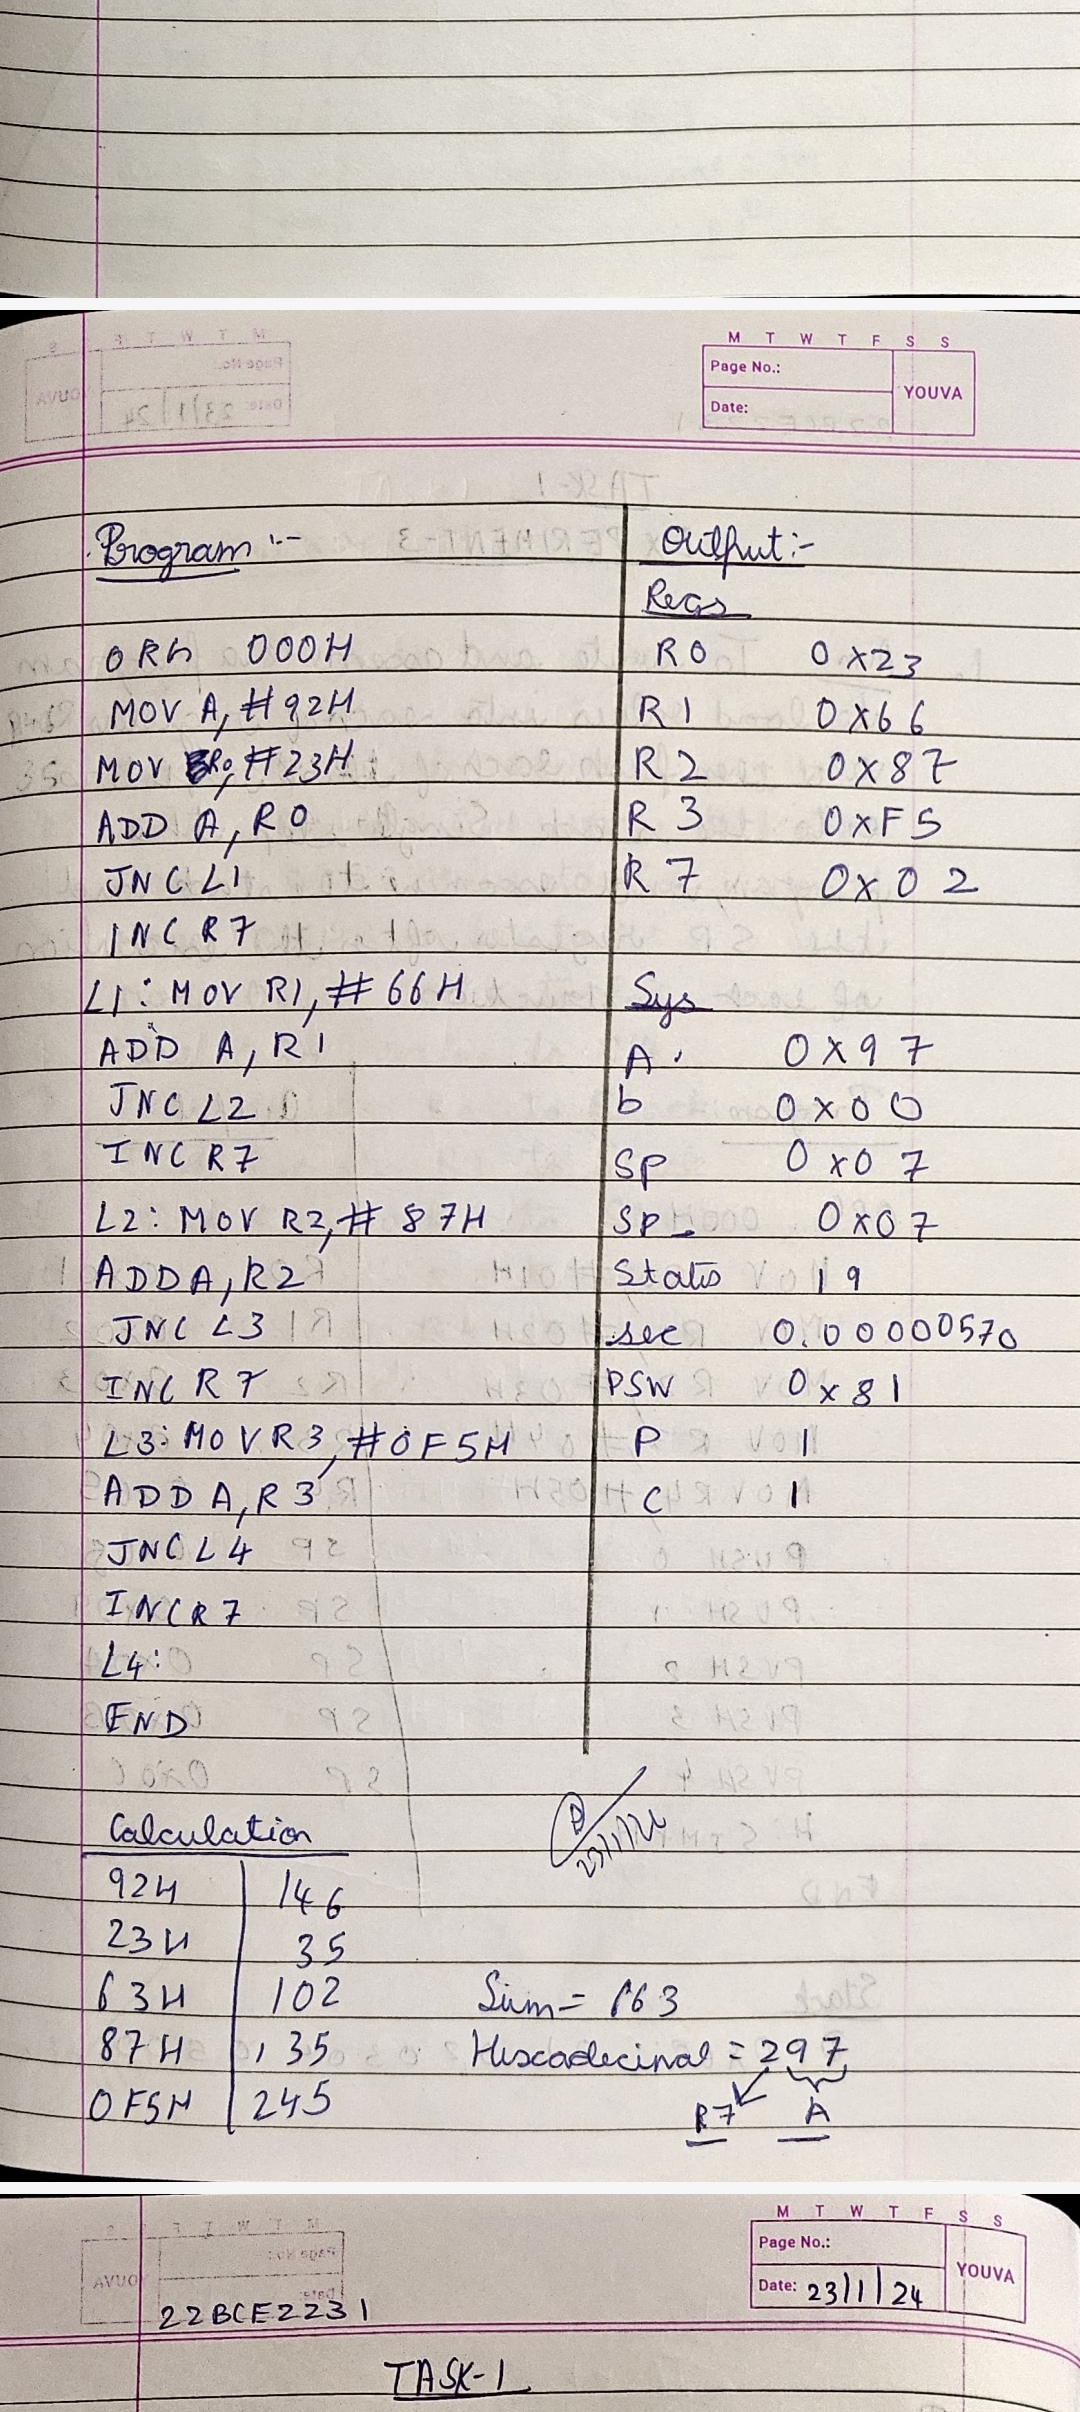 M T W T F S S
Page No.:
YOUVA
Date:
Program :-
ORG 000H
MOV A, #92H
MOV R0, #23H
ADD A, R0
JNC L1
INC R7
L1: MOV R1, #66H
ADD A, R1
JNC L2
INC R7
L2: MOV R2, #87H
ADD A, R2
JNC L3
INC R7
L3: MOV R3, #0F5H
ADD A, R3
JNC L4
INC R7
L4:
END
Output :-
Regs
R0 0x23
R1 0x66
R2 0x87
R3 0xF5
R7 0x02
Sys
A 0x97
b 0x00
SP 0x07
SP 0x07
States 19
sec 0.00000570
PSW 0x81
P 1
C 1
23/1/24
Calculation
92H 146
23H 35
63H 102
87H 135
0F5H 245
Sum = 663
Hexadecimal = 297
R7 A
M T W T F S S
Page No.:
YOUVA
Date: 23/1/24
22BCE2231
TASK-1